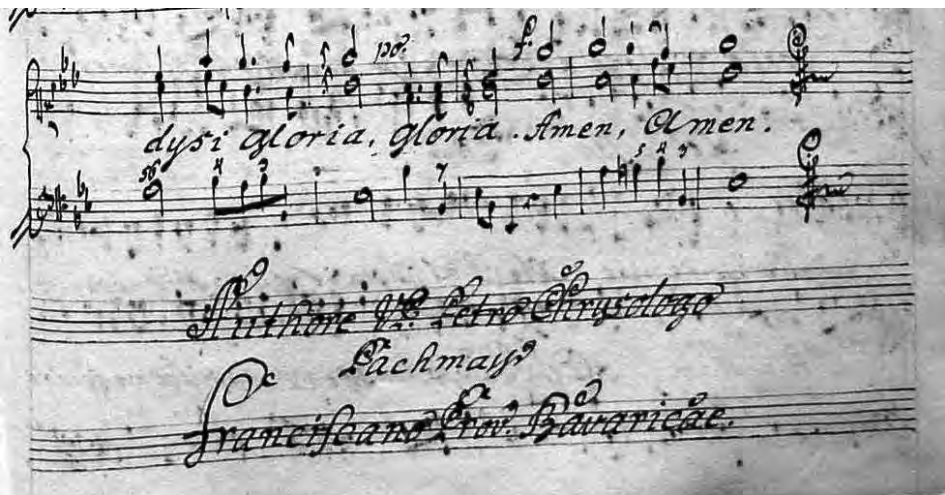 po. f.
dysi gloria, gloria. Amen, Amen.
56 4 3 7 5 4 3
Authore Petro Chrysologo
Pachmayr
Franciscano Prov. Bavaricae.